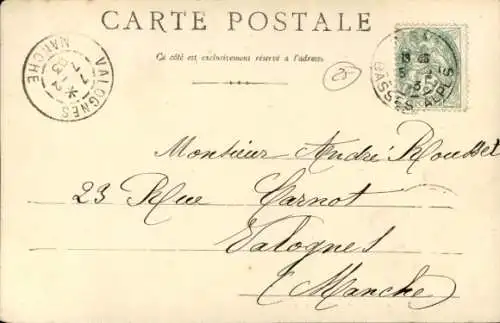 CARTE POSTALE
Ce côté est exclusivement réservé à l'adresse
VALOGNES
MANCHE
7 - 12
03
25
BASSES-ALPES
Monsieur André Rousset
23 Rue Carnot
Valognes
(Manche)